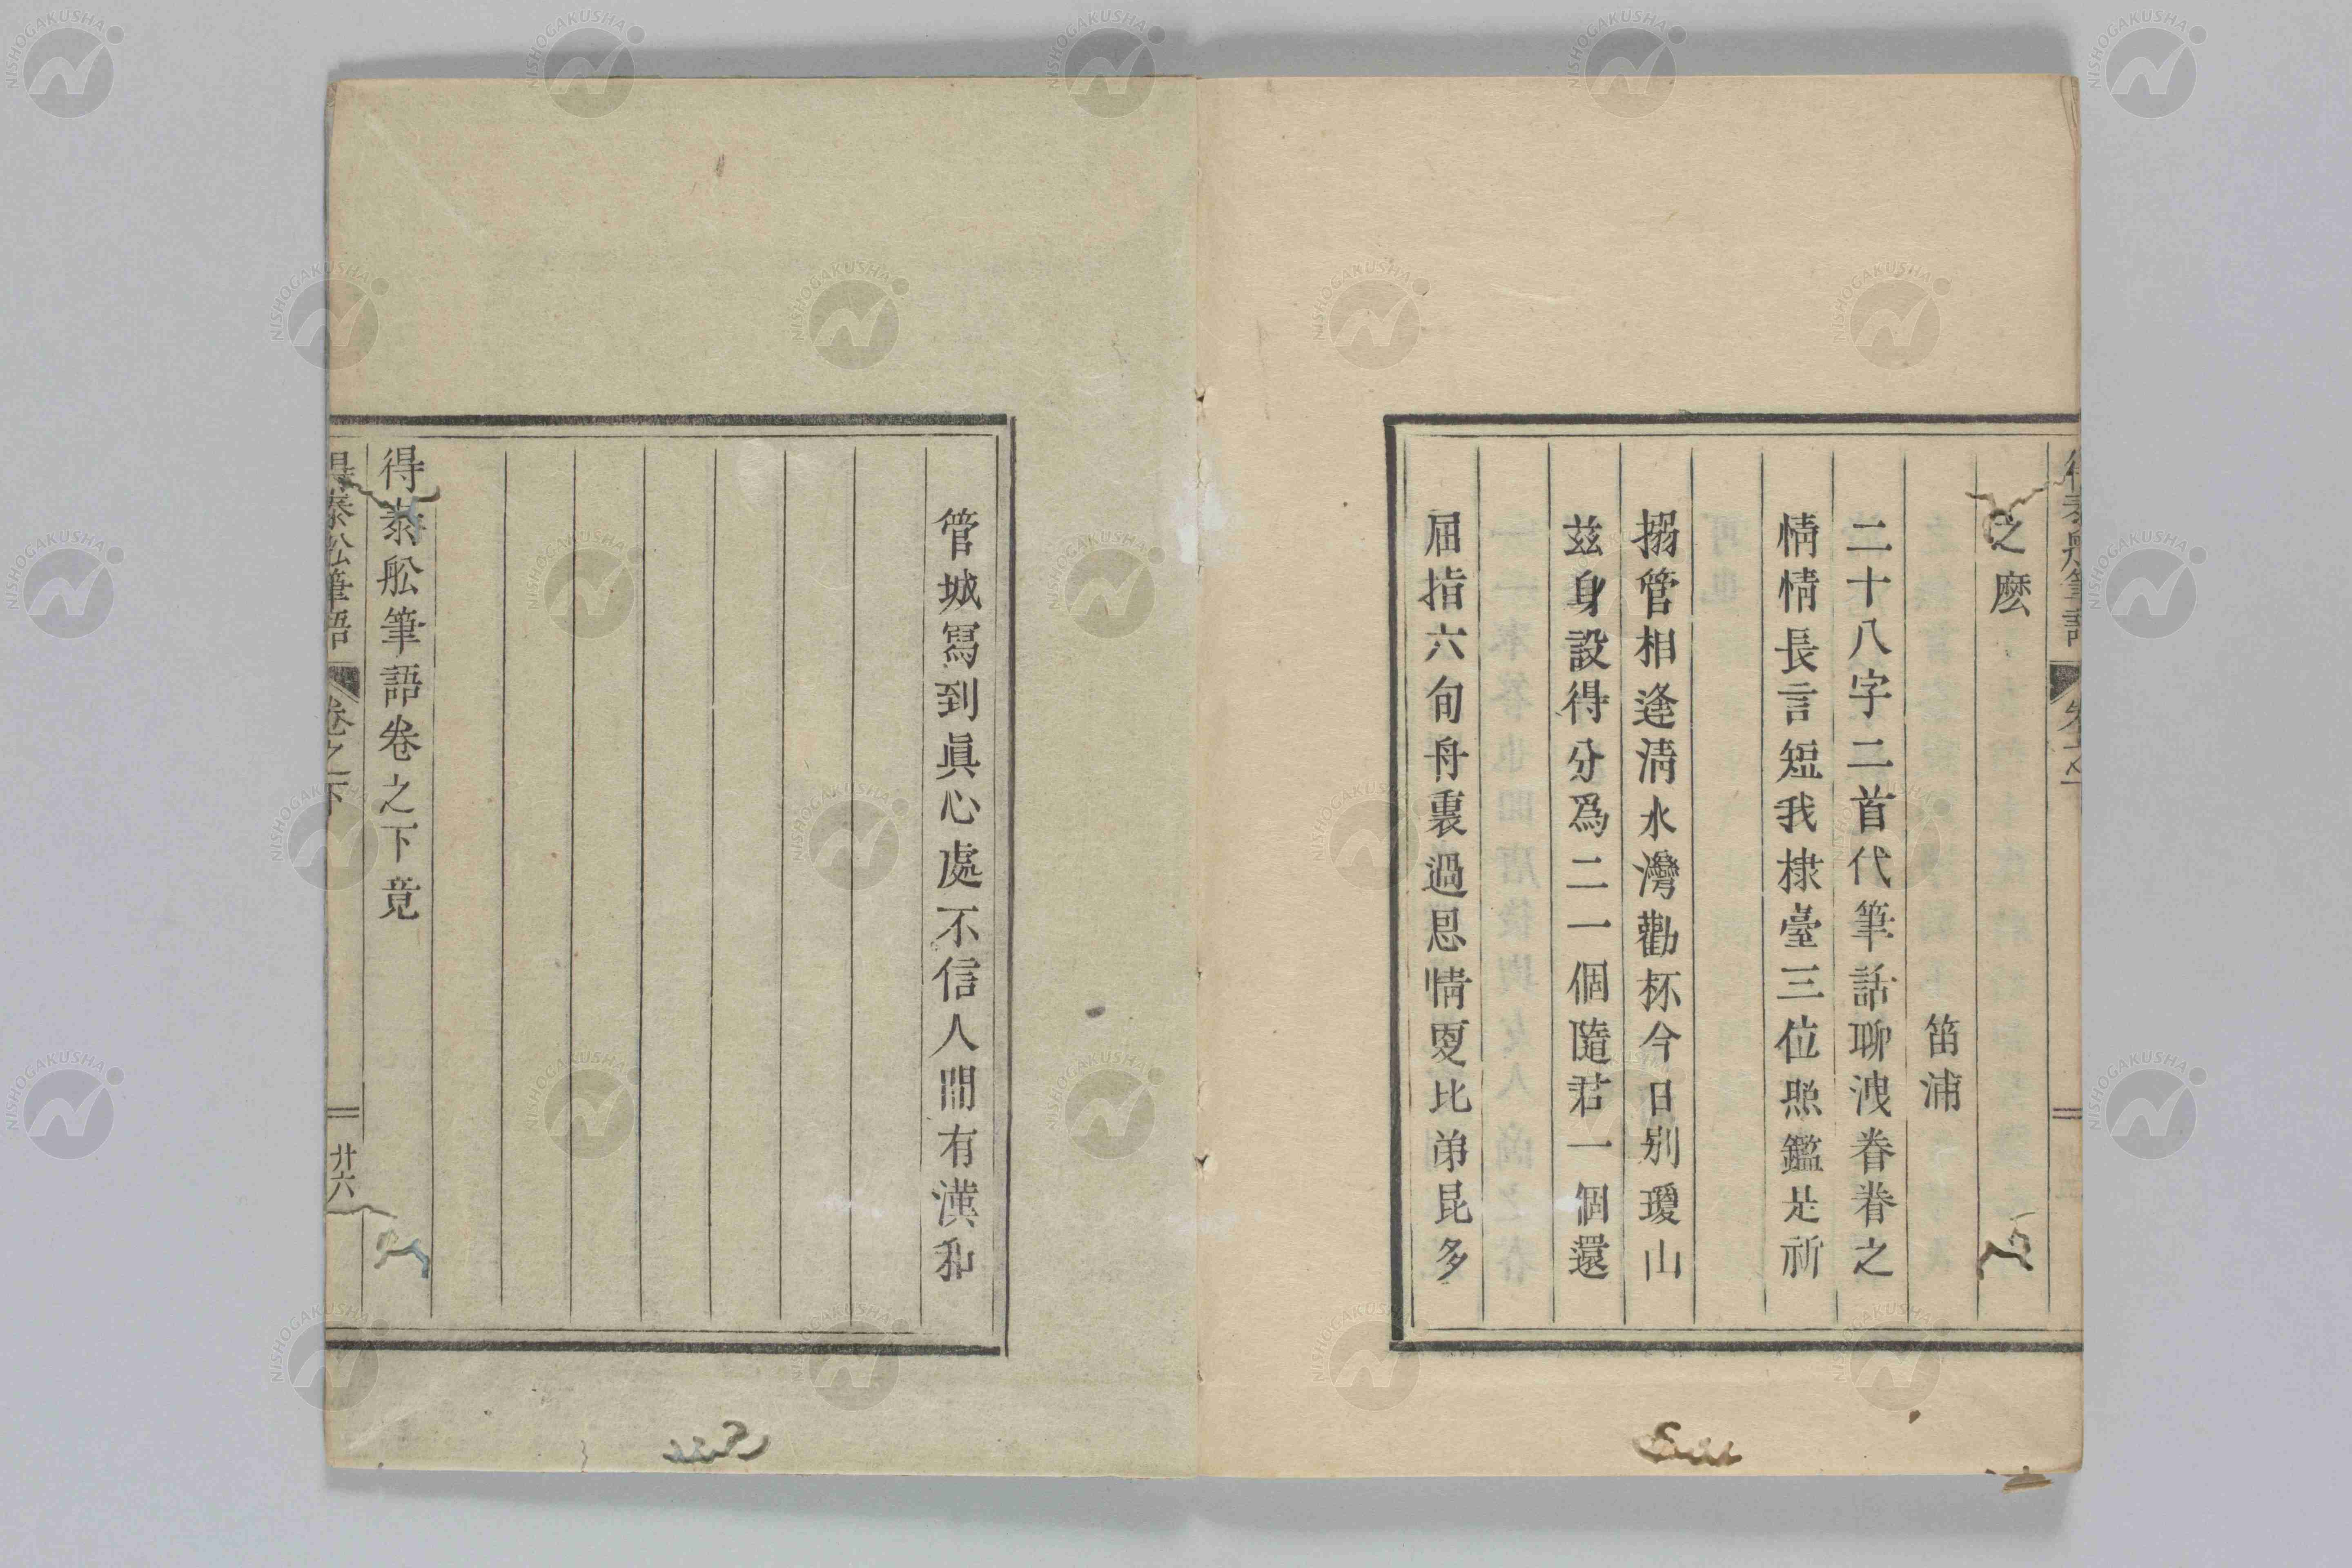 之麽
笛浦
二十八字二首代筆話聊洩眷眷之
情情長言短我棣臺三位照鑑是祈
搦管相逢淸水灣勸杯今日别瓊山
茲身設得分爲二一個隨君一個還
屈指六旬舟裏過恩情更比弟昆多
管城寫到眞心處不信人間有漢和
得泰舩筆語卷之下竟
得泰舩筆語 卷之下 廿六
NISHOGAKUSHA